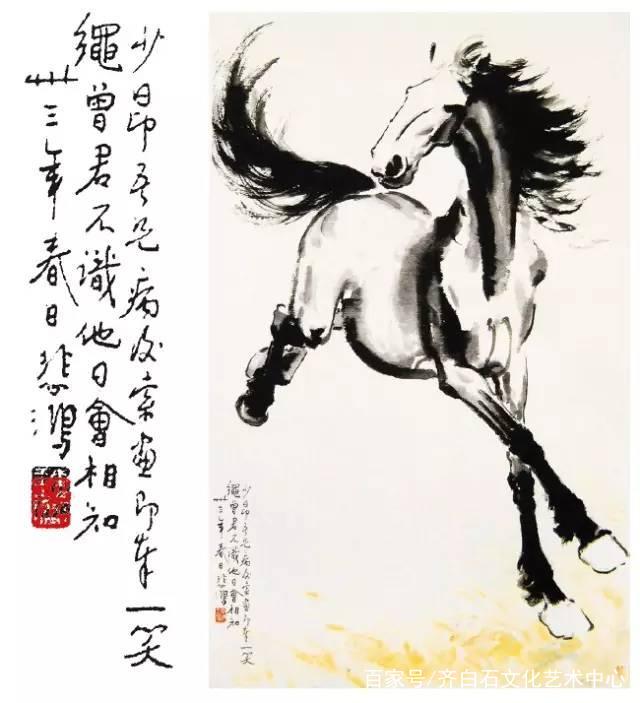 少昂吾兄病后索畫即奉一笑
繩曾君不識他日會相知
卅三年春日悲鴻
少昂吾兄病后索畫即奉一笑
繩曾君不識他日會相知
卅三年春日悲鴻
百家号/齐白石文化艺术中心